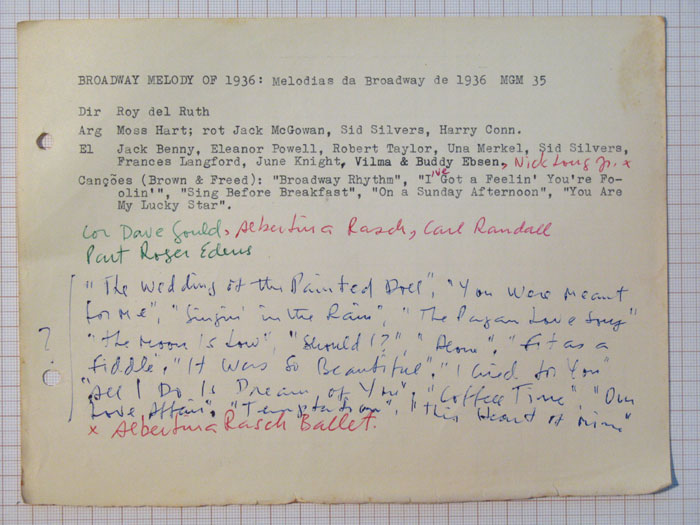 BROADWAY MELODY OF 1936: Melodias da Broadway de 1936 MGM 35
Dir Roy del Ruth
Arg Moss Hart; rot Jack McGowan, Sid Silvers, Harry Conn.
El Jack Benny, Eleanor Powell, Robert Taylor, Una Merkel, Sid Silvers,
Frances Langford, June Knight, Vilma & Buddy Ebsen, Nick Long Jr. x
Canções (Brown & Freed): "Broadway Rhythm", "I've Got a Feelin' You're Fo-
olin'", "Sing Before Breakfast", "On a Sunday Afternoon", "You Are
My Lucky Star".
Cor Dave Gould, Albertina Rasch, Carl Randall
Part Roger Edens
"The Wedding of the Painted Doll", "You Were Meant
for Me", "Singin' in the Rain", "The Pagan Love Song"
"The Moon Is Low", "Should I?", "Alone", "Fit as a
?
Fiddle", "It Was So Beautiful", "I Cried for You"
"All I Do Is Dream of You", "Coffee Time", "Our
Love Affair", "Temptation", "This Heart of Mine"
x Albertina Rasch Ballet.